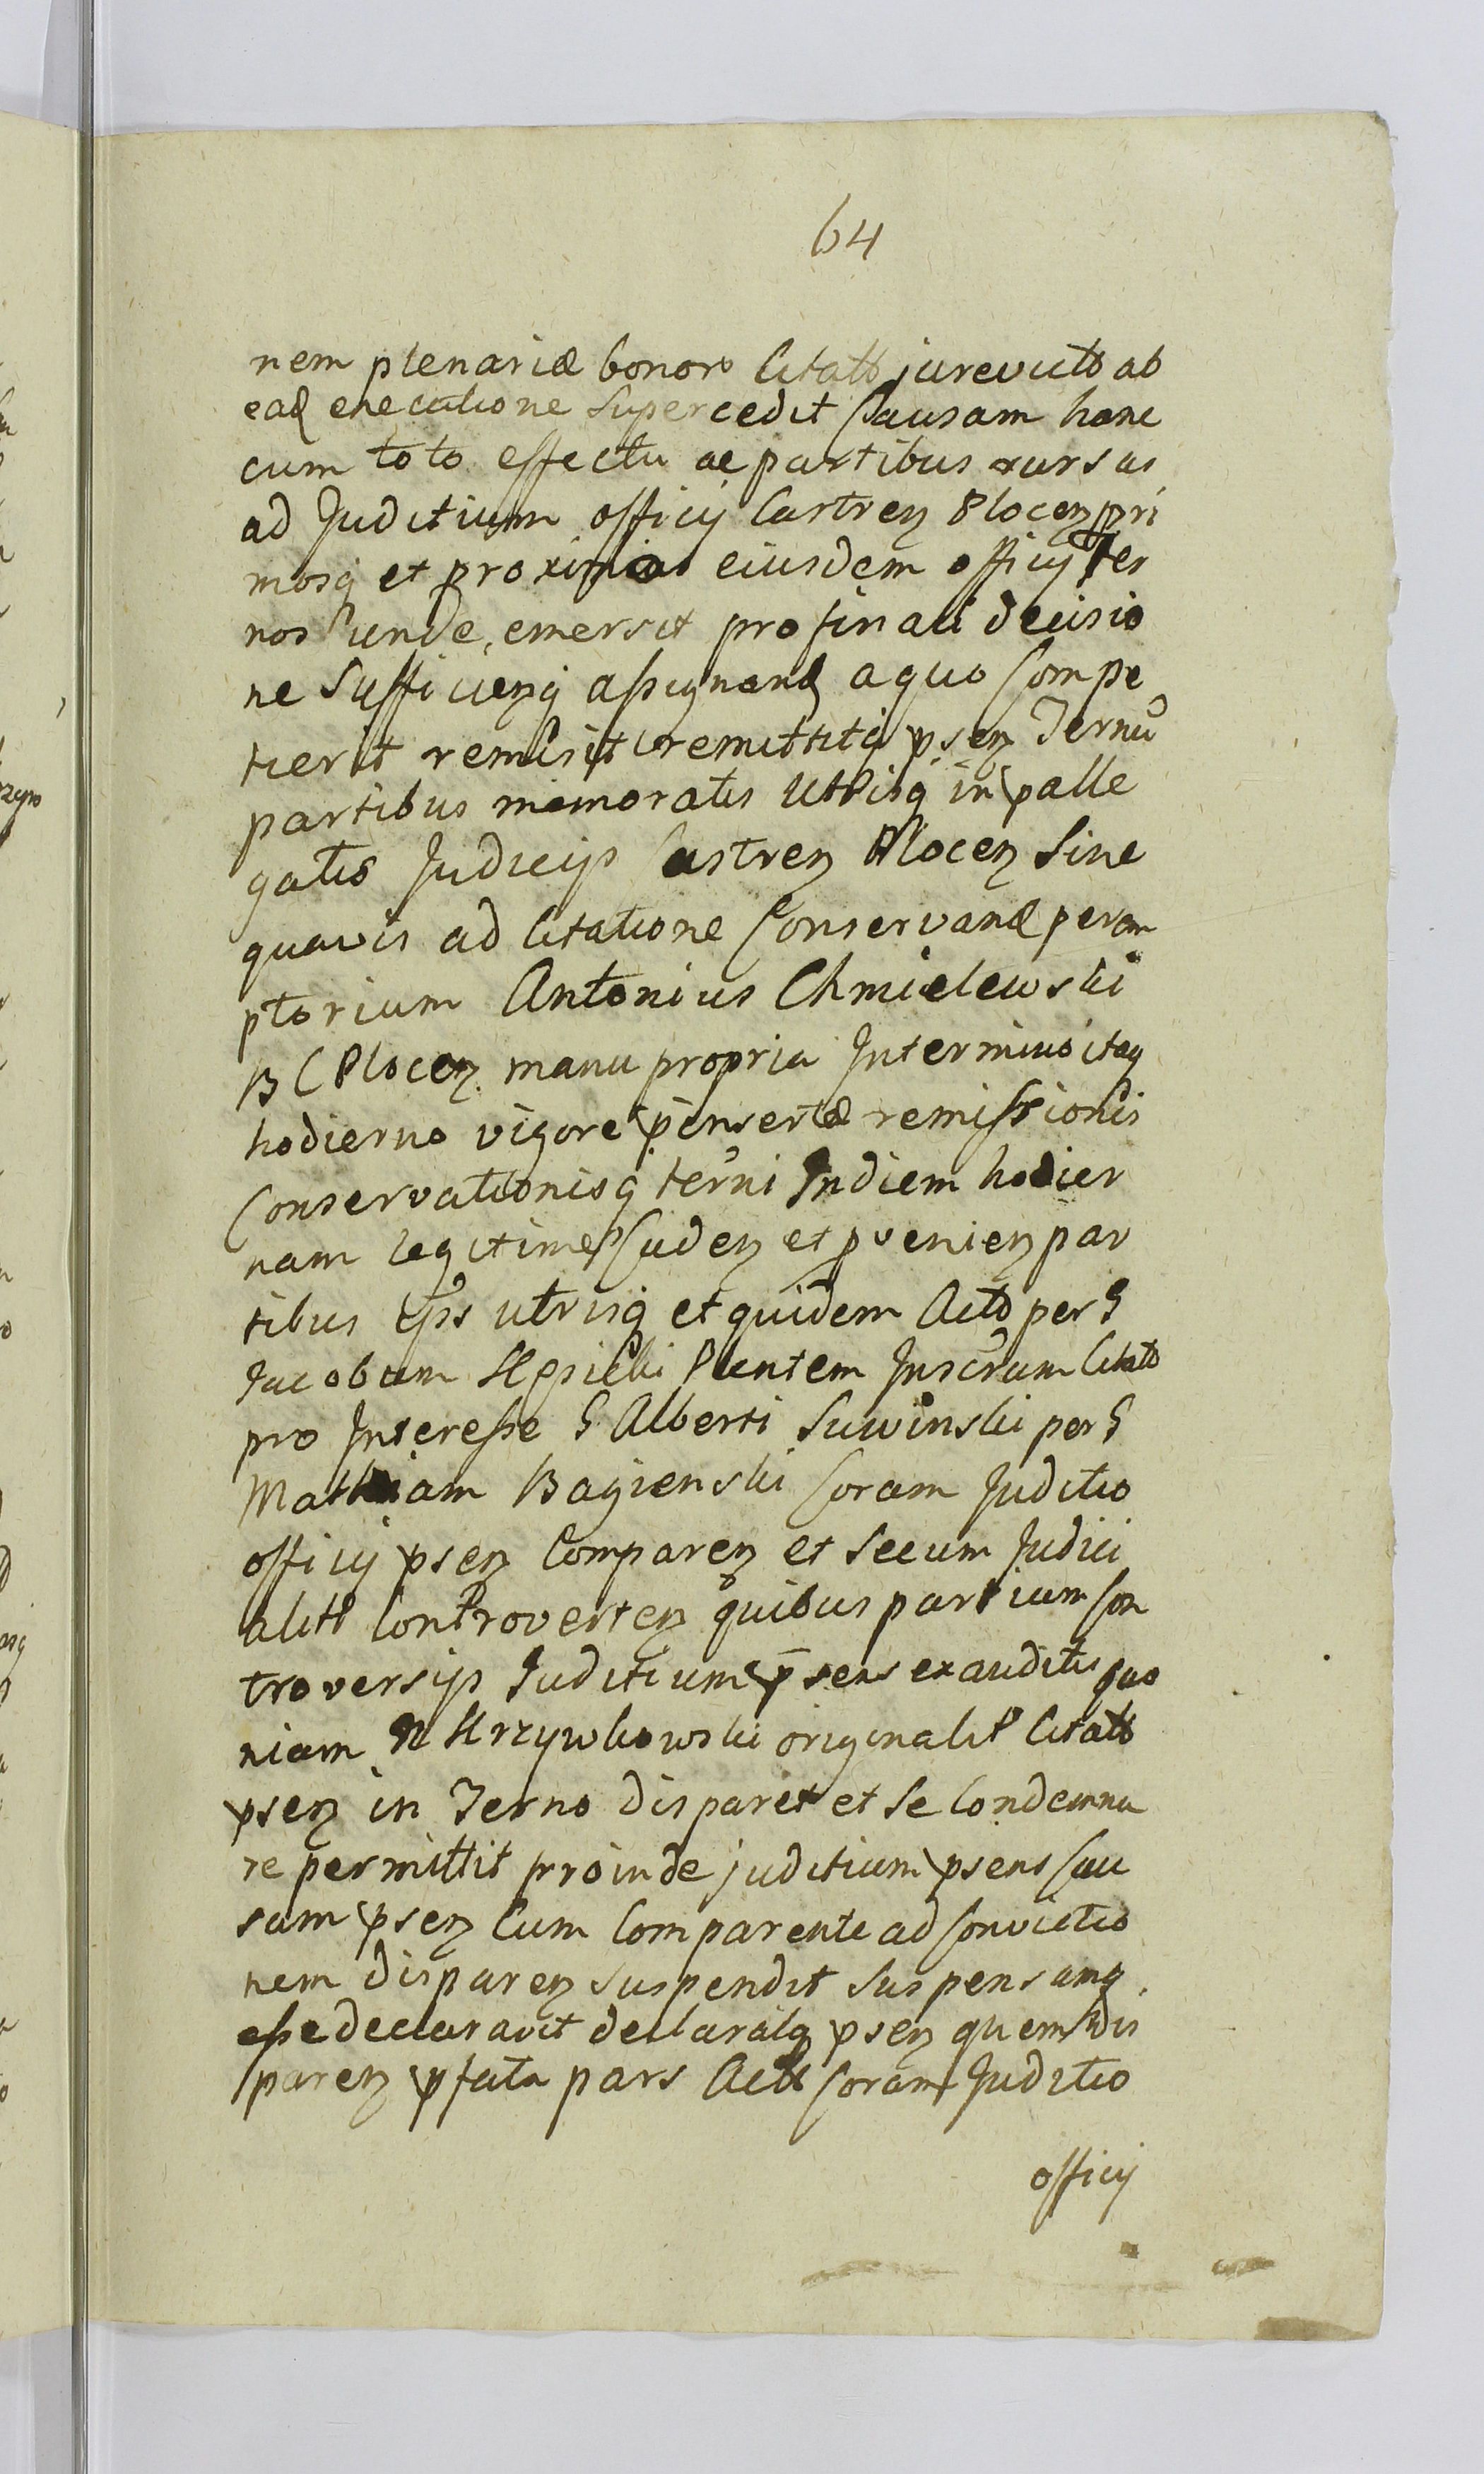 64
nem plenariæ bonoro Citatt jurevictt ab
ead executione Supercedit Causam hanc
cum toto effectu ac partibus rursus
ad Juditium officij Castren Plocen pri
mosq et proximios eiusdem officij ter
nos unde emersit pro finali decisio
ne Sufficienq assignand a quo Compe
tierit remisit remittitq psen Ternu
partibus memoratis Utrisq in palle
gatis Judicijs Castren Plocen Sine
quavis ad Citatione Conservand perem
ptorium Antonius Chmielewski
B C Plocen manu propria In termino itaq
hodierno vigore pinsertæ remissionis
Conservationisq terni In diem hodier
nam legitime Caden et pvenien par
tibus ips utrisq et quidem Acto per G
Jacobum plentem Inscrum Citato
pro Interesse G Alberti Suwinski per G
Mathiam Bagienski Coram Juditio
officij psen Comparen et Secum Judici
alitr Controverten quibus partium Con
troversijs Juditium psens exauditis quo
niam N Krzywkowski originalitr Citatt
psen in Terno disparet et Se Condemna
re permittit proinde juditium psens Cau
sam psen Cum Comparente ad Convictio
nem disparen suspendit suspensamq
esse declaravit declaratq psen quem dis
paren pfata pars Actt Coram Juditio
officij